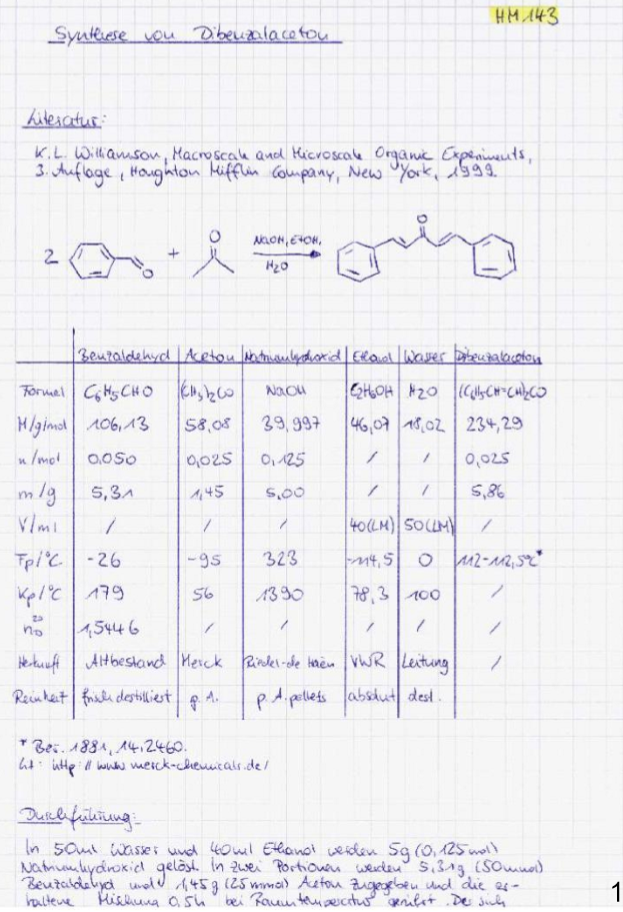 HM 143
Synthese von Dibenzalaceton
Literatur:
K.L. Williamson, Macroscale and Microscale Organic Experiments,
3. Auflage, Houghton Mifflin Company, New York, 1999.
2 O + O NaOH, EtOH, H2O O
Benzaldehyd Aceton Natriumhydroxid Ethanol Wasser Dibenzalaceton
Formel C6H5CHO (CH3)2CO NaOH C2H6OH H2O (C6H5CH=CH)2CO
M/g/mol 106,13 58,08 39,997 46,07 18,02 234,29
n/mol 0,050 0,025 0,125 / / 0,025
m/g 5,31 1,45 5,00 / / 5,86
V/ml / / / 40(LM) 50(LM) /
Fp/°C -26 -95 323 -114,5 0 112-112,5°C*
Kp/°C 179 56 1390 78,3 100 /
n20D 1,5446 / / / / /
Herkunft Altbestand Merck Riedel-de Haën VWR Leitung /
Reinheit frisch destilliert p.A. p.A. pellets absolut dest.
* Ber. 1881, 14, 2460.
Lit: http://www.merck-chemicals.de/
Durchführung:
In 50ml Wasser und 40ml Ethanol werden 5g (0,125mol)
Natriumhydroxid gelöst. In zwei Portionen werden 5,31g (50mmol)
Benzaldehyd und 1,45g (25mmol) Aceton zugegeben und die er-
haltene Mischung 0,5h bei Raumtemperatur gerührt. Der sich
1